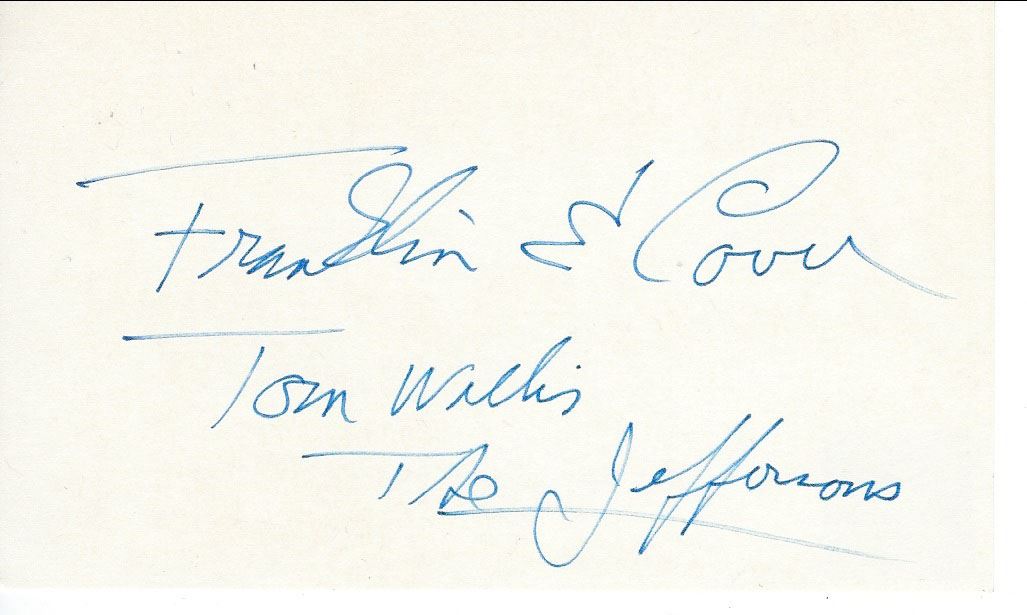 Franklin E Cover
Tom Willis
The Jeffersons